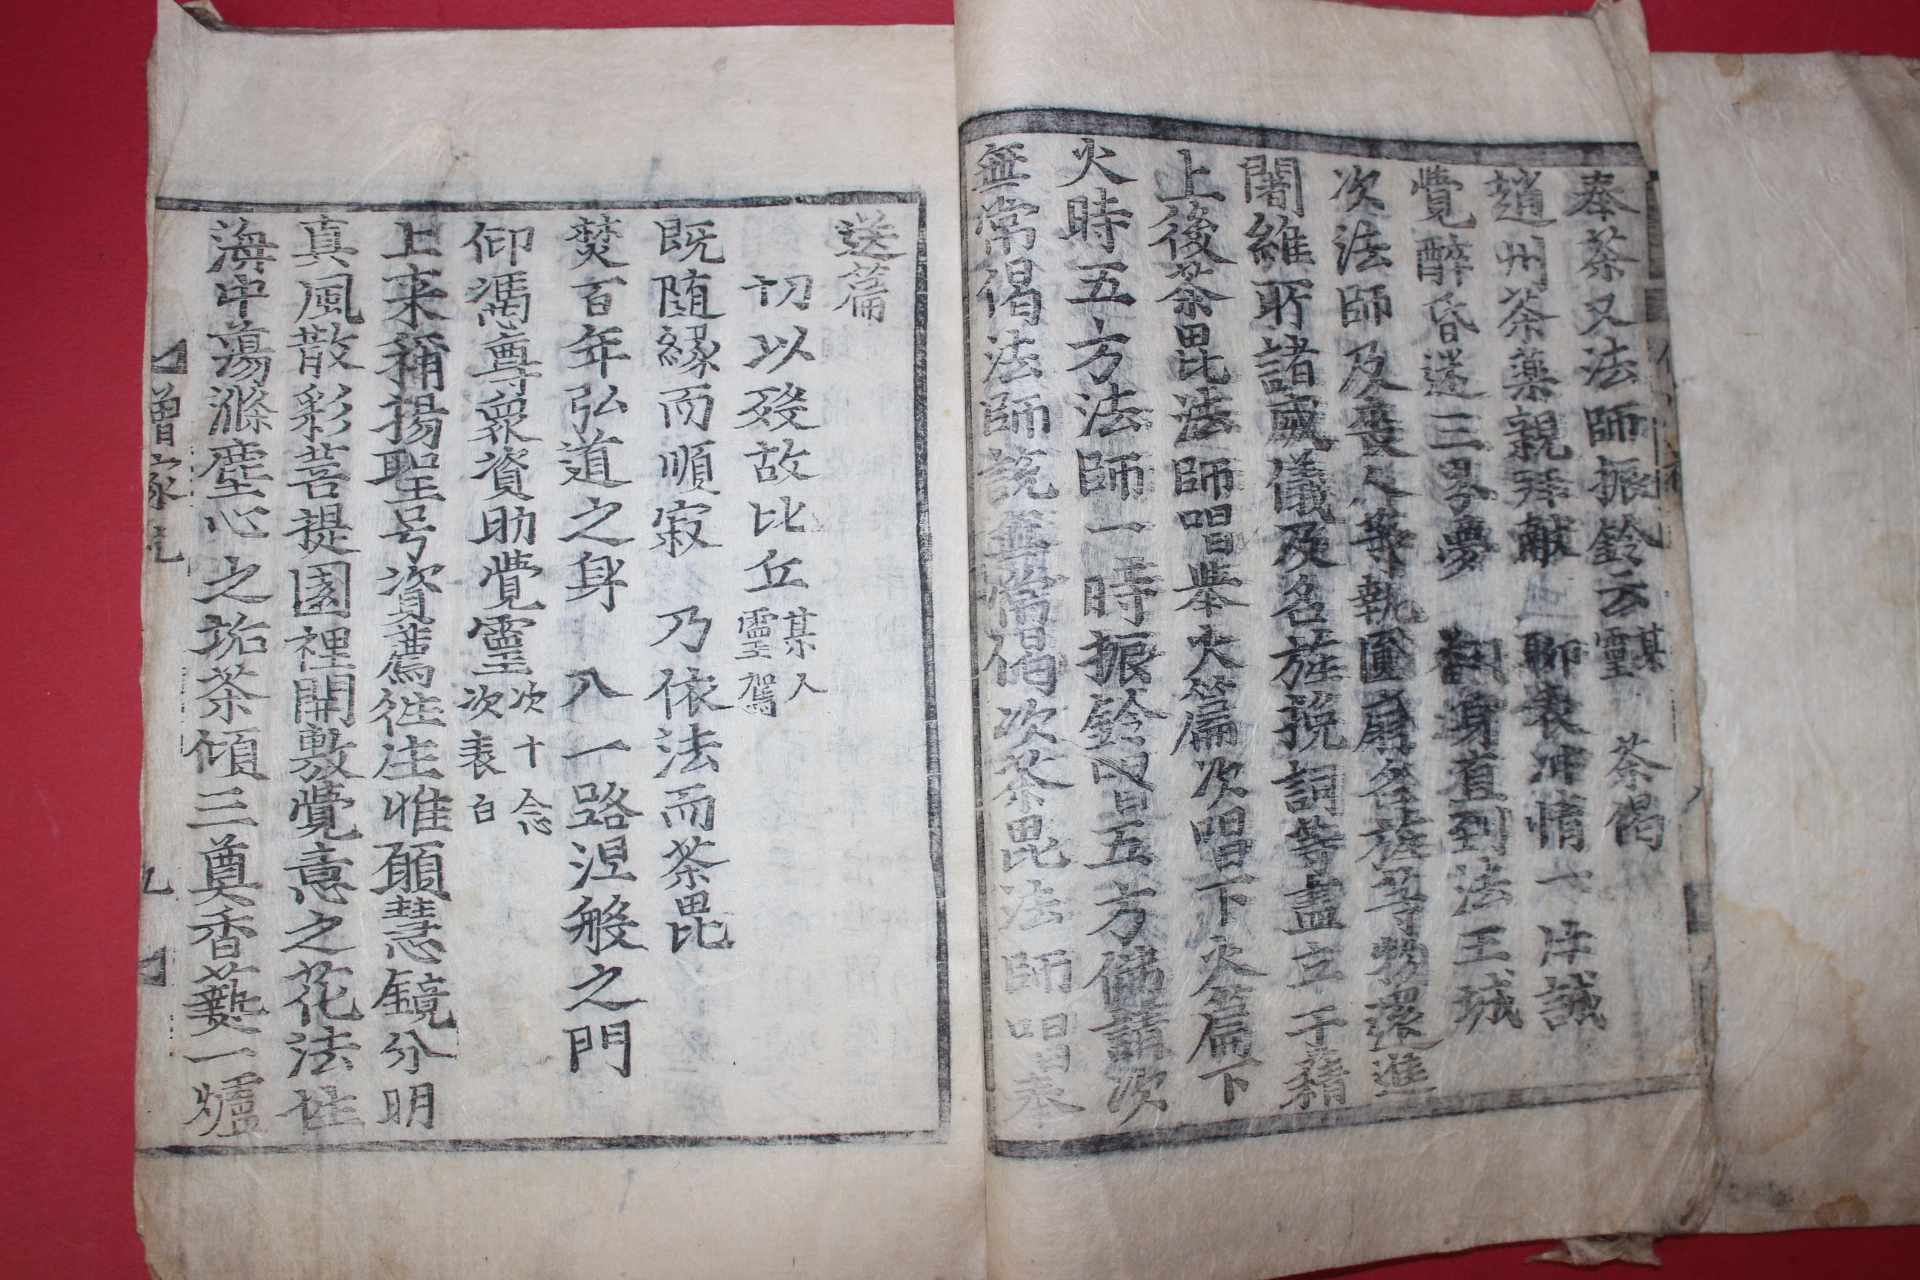 奉茶又法師振鈴云某靈 茶偈
趙州茶藥親拜獻 聊表冲情一片誠
覺醉昏迷三界夢 翻身直到法王城
次法師及喪人等執圓扇名旌等物還進
闍維所諸威儀及名旌挽詞等盡立于藉
上後茶毘法師唱举火篇次唱下火篇下
火時五方法師一時振鈴唱五方佛請次
無常偈法師說無常偈次茶毘法師唱奉
送篇
切以歿故比丘某人靈駕
既随緣而順寂 乃依法而茶毘
焚百年弘道之身 入一路涅般之門
仰馮尊衆資助覺靈次十念次表白
上来稱揚聖号資薦徃生惟願慧鏡分明
真風散彩菩提園裡開敷覺意之花法性
海中蕩滌塵心之垢茶傾三奠香爇一爐
僧家
九